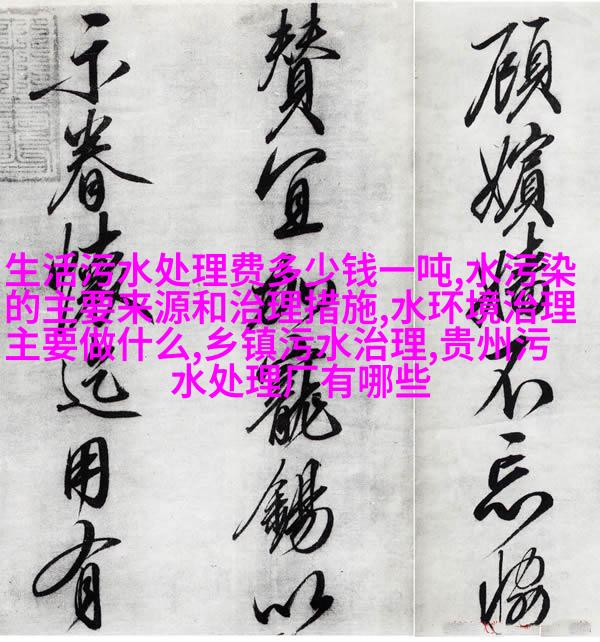 顾嫔嫱不忘恊
赞宜□宠锡以
示眷怀迄用有
生活污水处理费多少钱一吨,水污染
的主要来源和治理措施,水环境治理
主要做什么,乡镇污水治理,贵州污
水处理厂有哪些